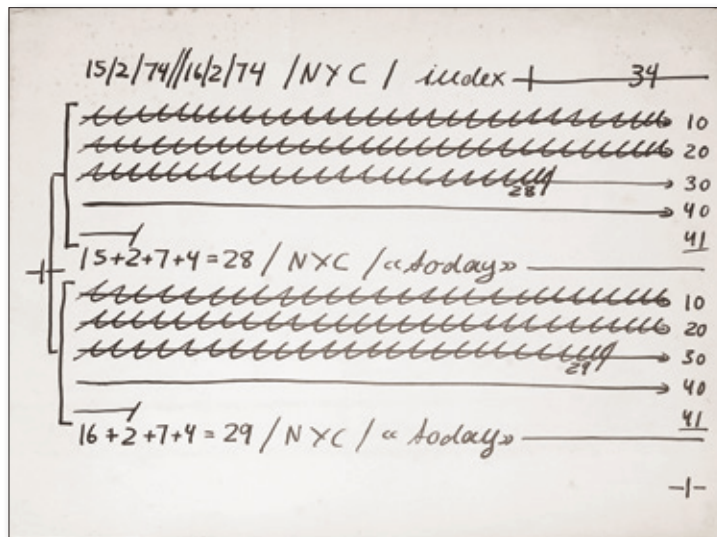 15/2/74//16/2/74 /NYC / index 34
10
20
28 30
40
41
15+2+7+4=28 / NYC / «today»
10
20
29 30
40
41
16+2+7+4=29 / NYC / «today»
-1-